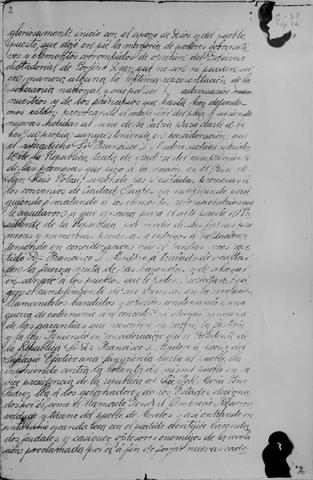 2
gloriosamente inició con el apoyo de Dios y del pueblo,
puesto, que dejó en pié la mayoría de poderes gobernati-
vos y elementos corrompidos de opresión del Gobierno
dictatorial de Porfirio Díaz, que no son ni pueden ser
en manera alguna la legítima representación de la
soberanía nacional, y que por ser adversarios
nuestros y de los principios que hasta hoy defende-
mos están provocando el malestar del país y abriendo
nuevas heridas al seno de la Patria para darle á be-
ber su propia sangre; teniendo en consideración que
el supradicho Sr. Francisco I. Madero actual Presiden-
te de la República trata de eludirse del cumplimiento
de las promesas que hizo á la nación en el Plan de
San Luis Potosí, las citadas promesas á
los convenios de Ciudad Juárez, ya nulificando, perse-
guiendo ó matando á los elementos revolucionarios que
le ayudaron á que ocupara el alto puesto de Pre-
sidente de la República, por medio de sus falsas pro-
mesas y numerosas intrigas á la nación;
teniendo en consideración que el tantas veces repe-
tido Dn. Francisco I. Madero á tratado de ocultar
con la fuerza bruta de las bayonetas y de ahogar
en sangre á los pueblos que le piden, solicitan ó exi-
gen el cumplimiento de sus promesas en la revolución
llamandolos bandidos y rebeldes, condenandolos á una
guerra de exterminio, sin conceder ni otorgar ninguna
de las garantías que prescriben la razón, la justicia
y la ley; teniendo en consideración que el Presidente de
la República Sr. Dn. Francisco I. Madero, ha hecho del
Sufragio Efectivo una sangrienta burla al pueblo, ya
imponiendo contra la voluntad del mismo pueblo en la
Vice-presidencia de la República al Lic. José María Pino
Suárez, ó ya á los gobernadores de los Estados, designa-
dos por él, como el llamado General Ambrosio Figueroa
verdugo y tirano del pueblo de Morelos, ya entrando en
con el partido científico, hacenda-
dos feudales y caciques opresores enemigos de la revolu-
ción proclamada por él, á fin de forjar nuevas cade-
2